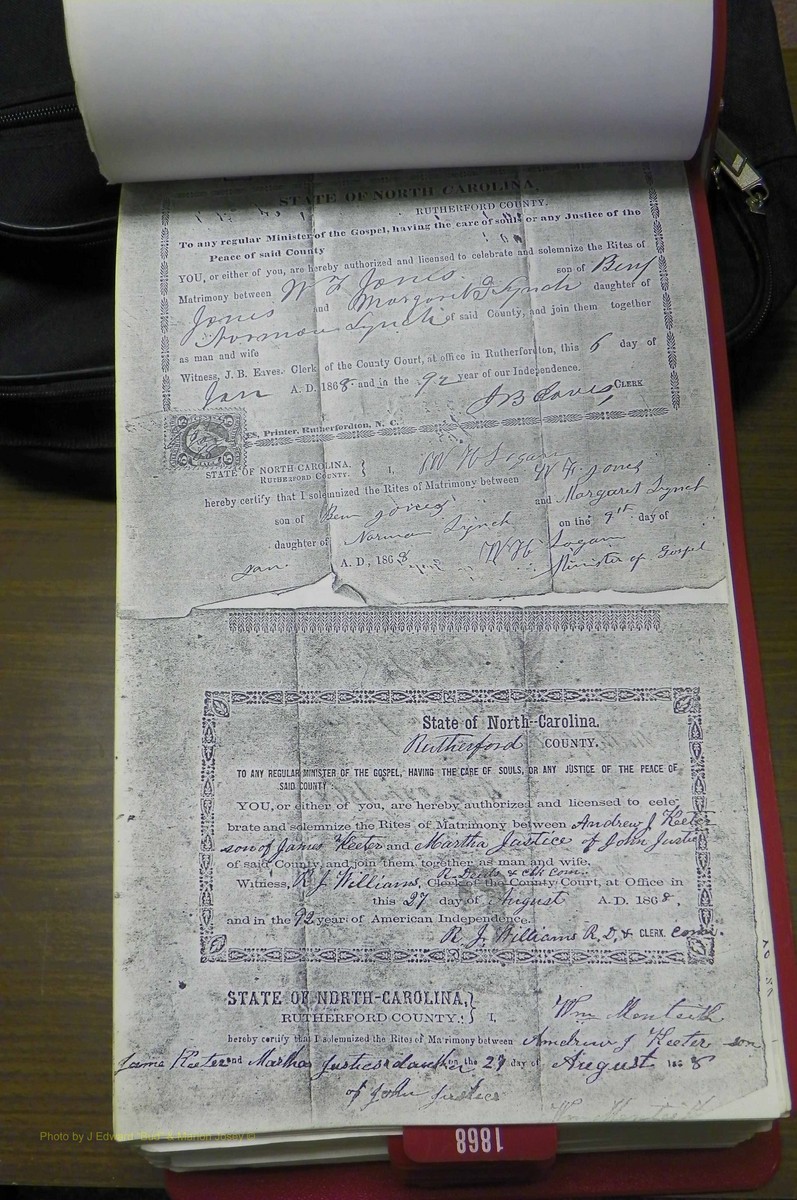 STATE OF NORTH CAROLINA,
RUTHERFORD COUNTY.
To any regular Minister of the Gospel, having the care of souls or any Justice of the
Peace of said County
YOU, or either of you, are hereby authorized and licensed to celebrate and solemnize the Rites of
Matrimony between W F Jones son of Benj
Jones and Margaret Lynch daughter of
Norman Lynch of said County, and join them together
as man and wife
Witness, J. B. Eaves. Clerk of the County Court, at office in Rutherfordton, this 6 day of
Jan A. D. 1868 and in the 92 year of our Independence.
J B Eaves CLERK
ES, Printer, Rutherfordton, N. C.
STATE OF NORTH CAROLINA,
RUTHERFORD COUNTY. } I, W H Logan
hereby certify that I solemnized the Rites of Matrimony between W F Jones
son of Ben Jones and Margaret Lynch
daughter of Norman Lynch on the 9th day of
Jan. A. D, 1868 W H Logan
Minister of Gospel
State of North-Carolina.
Rutherford COUNTY.
TO ANY REGULAR MINISTER OF THE GOSPEL, HAVING THE CARE OF SOULS, OR ANY JUSTICE OF THE PEACE OF
SAID COUNTY:
YOU, or either of you, are hereby authorized and licensed to cele-
brate and solemnize the Rites of Matrimony between Andrew J Keeter
son of James Keeter and Martha Justice of John Justice
of said County, and join them together as man and wife.
R. Deeds & clk Com.
Witness, R J Williams, Clerk of the County Court, at Office in
this 27 day of August A. D. 1868,
and in the 92 year of American Independence.
R. J. Williams R. D, & CLERK. Com.
STATE OF NORTH-CAROLINA,
RUTHERFORD COUNTY. } I, Wm Monteith
hereby certify that I solemnized the Rites of Matrimony between Andrew J Keeter son
Jame Keeter and Martha Justice daughter on the 27 day of August 1868
of John Justice
1868
Photo by J Edward